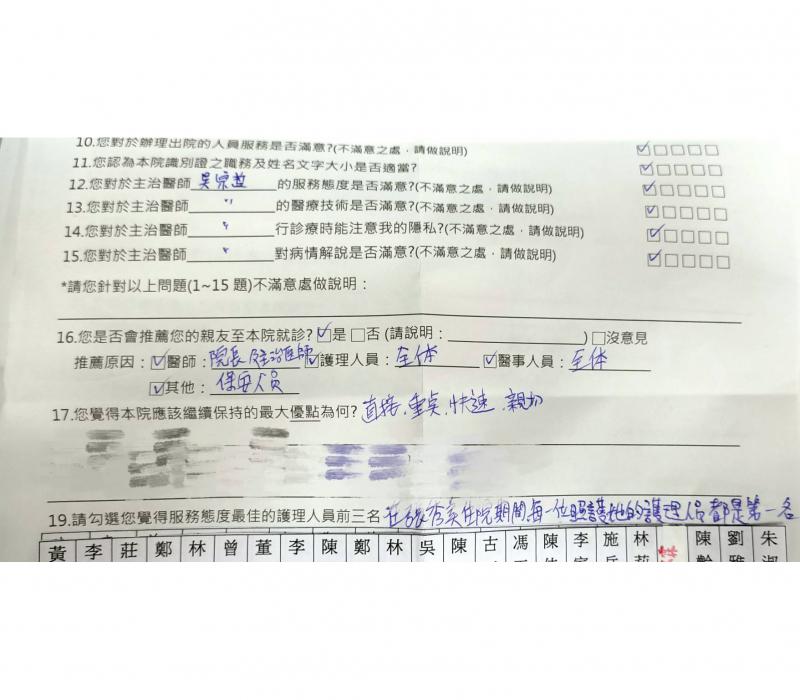 10.您對於辦理出院的人員服務是否滿意?(不滿意之處，請做說明)
11.您認為本院識別證之職務及姓名文字大小是否適當?
12.您對於主治醫師吳宗益的服務態度是否滿意?(不滿意之處，請做說明)
13.您對於主治醫師 〃 的醫療技術是否滿意?(不滿意之處，請做說明)
14.您對於主治醫師 〃 行診療時能注意我的隱私?(不滿意之處，請做說明)
15.您對於主治醫師 〃 對病情解說是否滿意?(不滿意之處，請做說明)
*請您針對以上問題(1~15 題)不滿意處做說明：
16.您是否會推薦您的親友至本院就診? ☑是 □否 (請說明：________) □沒意見
推薦原因：☑醫師：院長及主治醫師 ☑護理人員：全体 ☑醫事人員：全体
☑其他：保安人員
17.您覺得本院應該繼續保持的最大優點為何? 直接、重点、快速、親切
19.請勾選您覺得服務態度最佳的護理人員前三名 在張秀英住院期間每一位照護她的護理人員都是第一名
黃 李 莊 鄭 林 曾 董 李 陳 鄭 林 吳 陳 古 馮 陳 李 施 林 陳 劉 朱